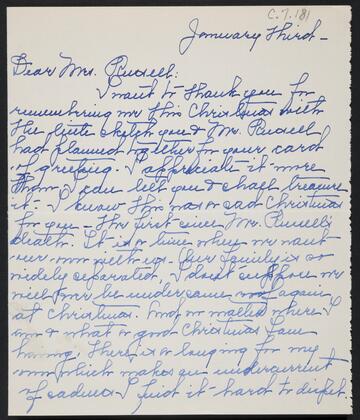 C.7.181
January Third -
Dear Mrs. Russell:
I want to thank you for
remembering me this Christmas with
the little sketch you & Mr. Russell
had planned together for your card
of greeting. I appreciate it more
than I can tell you & shall treasure
it - I know this was a sad Christmas
for you - the first since Mr. Russell's
death. It is a time when we want
our own with us. Our family is so
widely separated. I don't suppose we
will ever be under same roof again
at Christmas. And no matter where I
am & what a good Christmas I am
having, there is a longing for my
own which makes an undercurrent
of sadness I find it hard to dispel.